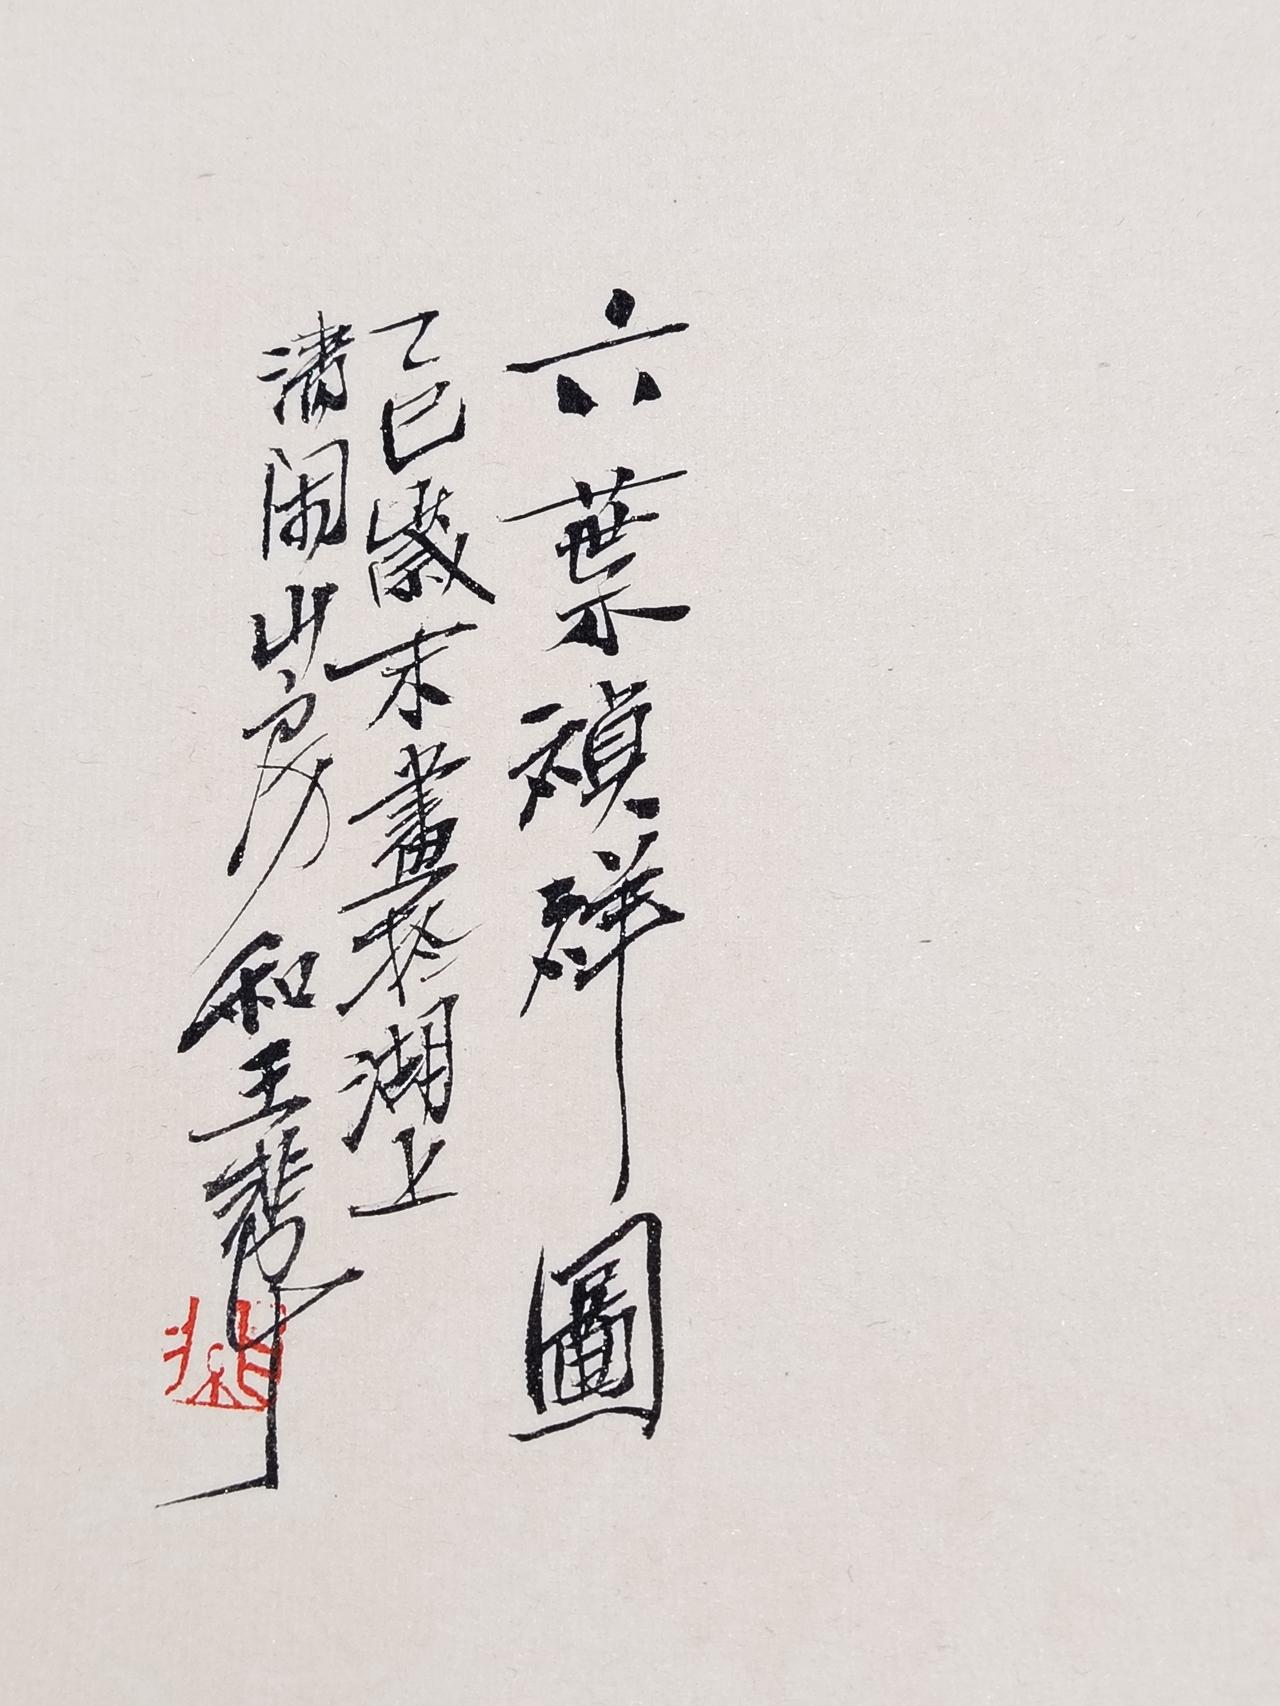 六葉禎祥圖
乙巳歲末畫於湖上
清閑山房 和王